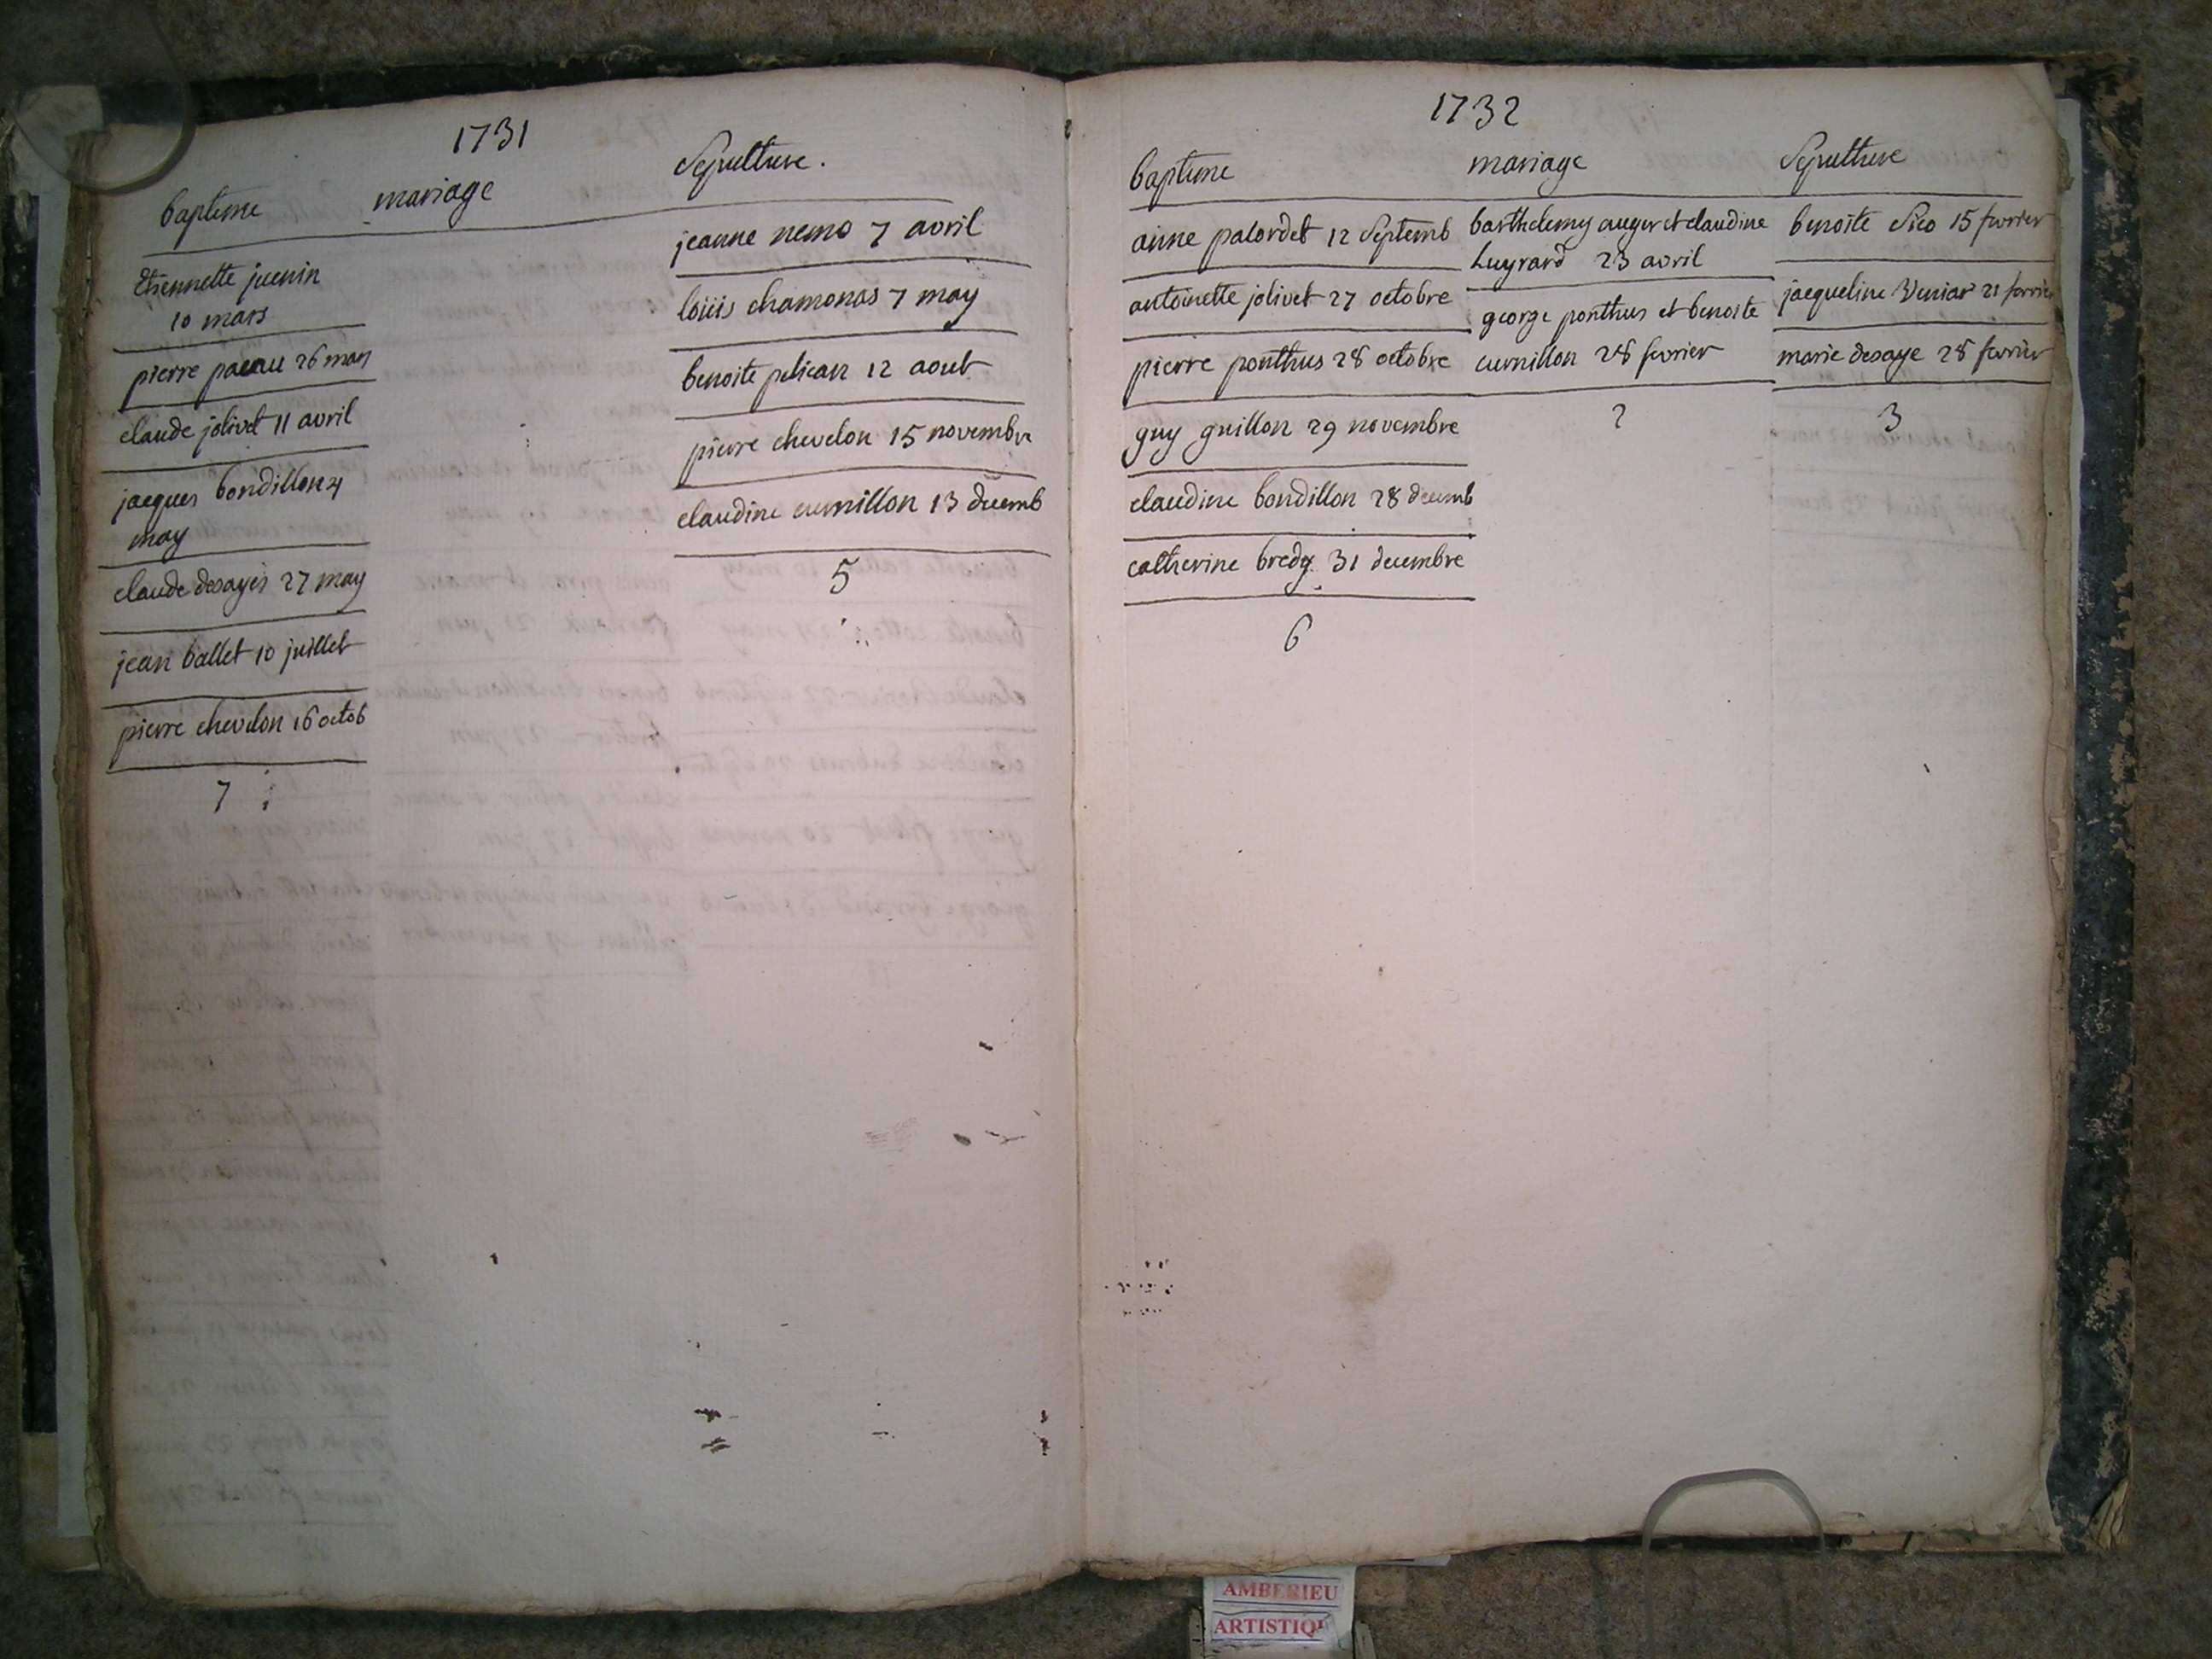 1731
bapteme
mariage
Sepulture.
Etiennette juenin
10 mars
pierre pacau 26 mars
claude jolivet 11 avril
jacques bondillon 4
may
claude desayes 27 may
jean ballet 10 juillet
pierre chevelon 16 octob
7
jeanne nemo 7 avril
loüis chamonas 7 may
benoite pelican 12 aout
pierre chevelon 15 novembre
claudine curnillon 13 decemb
5
1732
bapteme
mariage
Sepulture
anne palordet 12 Septemb
antoinette jolivet 27 octobre
pierre ponthus 28 octobre
guy guillon 29 novembre
claudine bondillon 28 decemb
catherine bredy 31 decembre
6
barthelemy auger et claudine
Luyrard 23 avril
george ponthus et benoite
curnillon 28 fevrier
2
benoite Sico 15 fevrier
jacqueline 21 fevrier
marie desaye 28 fevrier
3
AMBERIEU